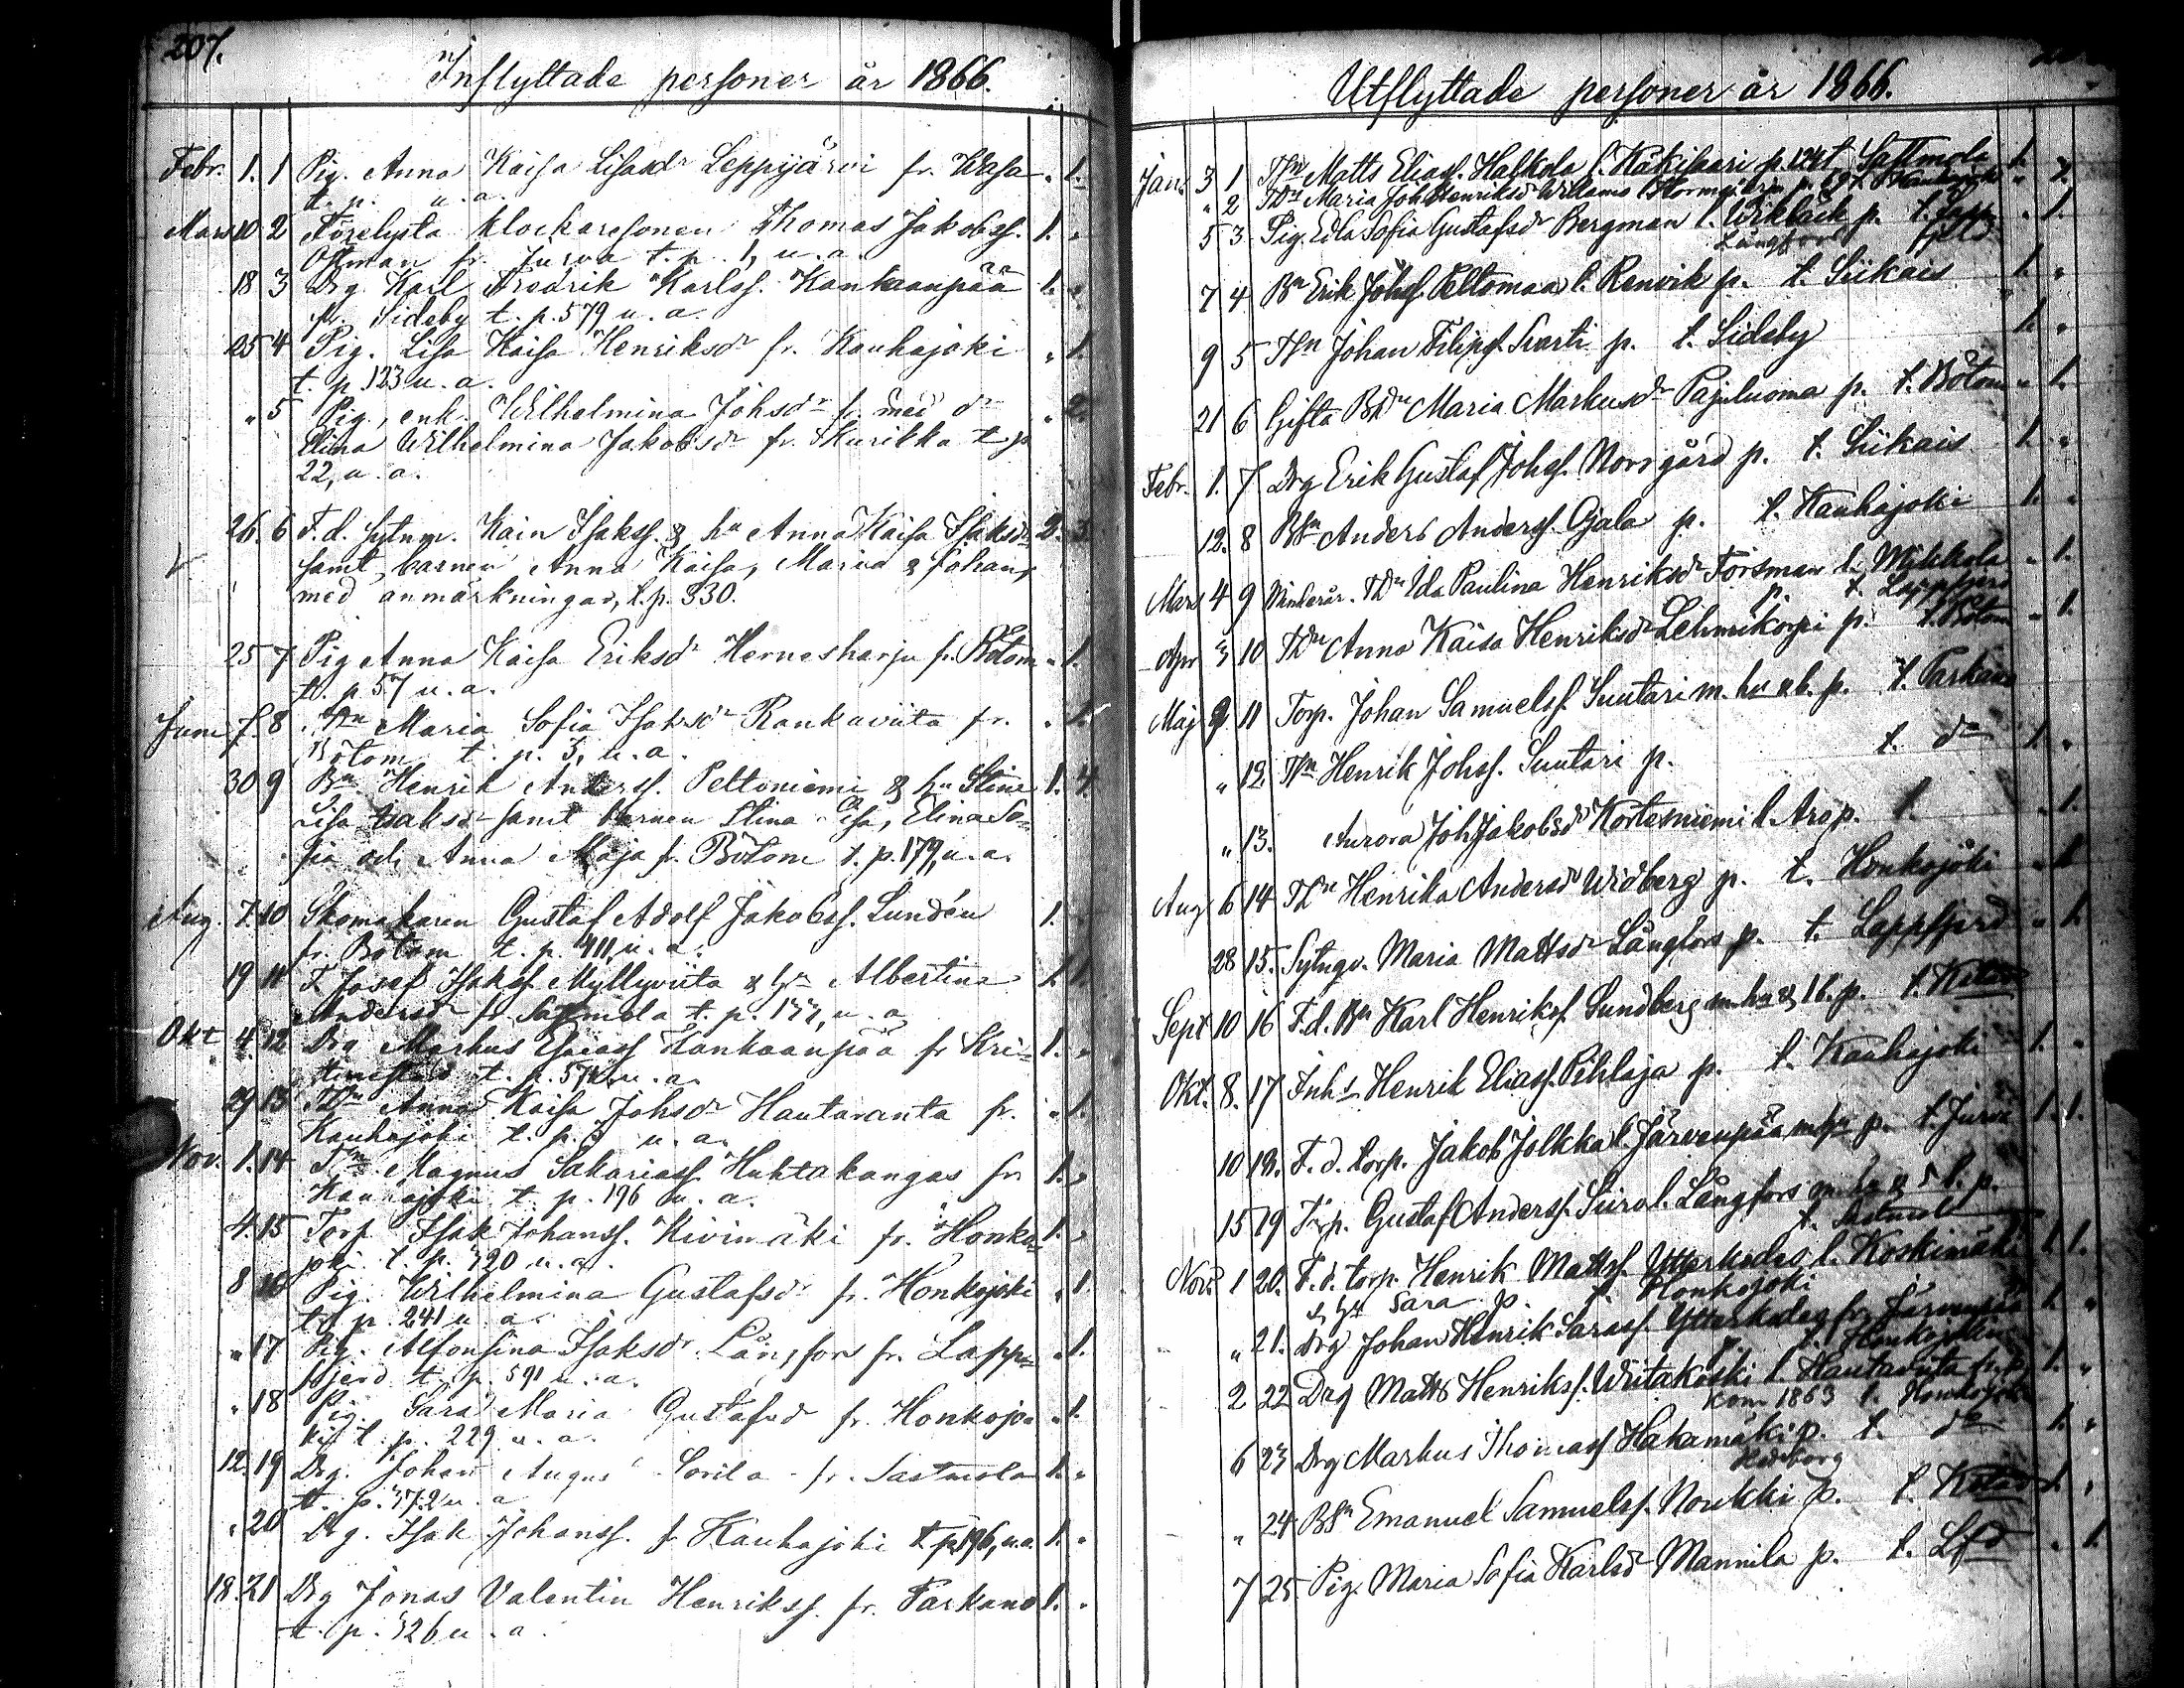 207.
Inflyttade personer år 1866.
Febr. 1. 1 Pig. Anna Kaisa Lisasdr Leppijärvi fr. Wasa " 1.
t. p. u. a.
Mars 10 2 Förelysta klockaresonen Thomas Jakobss. 1. "
Öffman fr. Jurva t. p. 1, u. a.
18 3 Drg. Karl Fredrik Karlss. Kankaanpää 1. "
fr. Sideby t. p. 579 u. a.
25 4 Pig. Lisa Kaisa Henriksdr fr. Kauhajoki " 1.
t. p. 123 u. a.
" 5 Pig, enk. Wilhelmina Johsdr fr. med dr " 2.
Elina Wilhelmina Jakobsdr fr. Kurikka t p
22, u. a.
26. 6 F. d. sytnm. Kain Isakss. & hu Anna Kaisa Isaksdr 2. 3.
samt barnen Anna Kaisa, Maria & Johan,
med anmärkningar, t. p. 330.
25 7 Pig Anna Kaisa Eriksdr Hernesharju fr. Bötom " 1.
t. p 57 u. a.
Juni 8 Maria Sofia Isaksdr Rankaviita fr. " 1.
Bötom t. p. 3, u. a.
30 9 Bn Henrik Anderss. Peltoniemi & hu Stina 1. 4.
Lisa Isaksdr samt barnen Stina Lisa, Elina So=
fia och Anna Maja fr. Bötom t. p. 179, u. a.
Aug. 7. 10 Skomakaren Gustaf Adolf Jakobss. Lundén 1.
fr. Bötom t. p. 411, u. a.
19 11 T. Josef Isakss. Myllyviita & hu Albertina 1. 1.
Andersdr fr. Sastmola t. p. 133, u. a.
Okt 4. 12 Drg Markus Kankaanpää fr Kri= 1. "
stinestad t. p. 574, u. a.
29 13 Anna Kaisa Johsdr Hautaranta fr. " 1.
Kauhajoki t. p. 3 u. a.
Nov. 1. 14 Magnus Sakariass. Huhtakangas fr 1. "
Kauhajoki t. p. 196 u. a.
4. 15 Torp Isak Johanss. Kivimäki fr. Honko= 1. "
joki t. p. 320 u. a.
8 16 Pig. Wilhelmina Gustafsdr fr. Honkojoki " 1.
t. p. 241 u. a.
" 17 Pig. Alfonsina Isaksdr Långfors fr. Lapp= " 1.
fjerd t. p. 591 u. a.
" 18 Pig. Sara Maria Gustafsdr fr. Honkojo= " 1.
ki t. p. 229 u. a.
12. 19 Drg. Johan August Sorila fr. Sastmola 1. "
t. p. 372 u. a
" 20 Drg. Isak Johanss. fr Kauhajoki t p 196, u. a. 1. "
18. 21 Drg Jonas Valentin Henrikss. fr. Parkano 1. "
t. p. 326 u. a.
Utflyttade personer år 1866.
Jan. 3 1 Matts Eliass. Halkola l. Käkihari p. 124 t Sastmola 1.
" 2 Maria Joh Henriksdr Willams
5 3 Pig. Edla Sofia Gustafsdr Bergman l. Wikbäck p. t. Lapp " 1.
Långfors fjerd
7 4 Bn Erik Johss. Peltomaa l. Renvik p. t. Siikais 1. "
9 5 Johan Filipss. Svarti p. t. Sideby 1. "
21 6 Gifta Maria Markusdr Pajuluoma p. t. Bötom " 1.
Febr. 1. 7 Drg Erik Gustaf Johss. Norrgård p. t. Siikais 1. "
12. 8 Anders Anderss. Ojala p. t. Kauhajoki 1. "
Mars 4 9 Minderår. Ida Paulina Henriksdr Forsman l. Mikkola " 1.
p. t. Lappfjerd
Apr 3 10 Anna Kaisa Henriksdr Lehmikorpi p. t. Bötom " 1.
Maj 9 11 Torp. Johan Samuelss. Suutari m. hu & b. p. t. Parkano
" 12 Henrik Johss. Suutari p. t. do 1. "
" 13. Aurora Joh Jakobsdr Kortesniemi l. Aro p. t. " 1.
Aug 6 14 Henrika Andersdr Widberg p. t. Honkojoki " 1
28 15. Sytngr. Maria Mattsdr Långfors p. t. Lappfjerd " 1.
Sept 10 16 F. d. Bn Karl Henrikss. Sundberg m. hu & 1 b. p. t. Kstad
Okt. 8. 17 Inhs Henrik Eliass. Pihlaja p. t. Kauhajoki 1. "
10 18. F. d. torp. Jakob Jolkka l. Järvenpää m. hu p. t. Jurva 1. 1.
15 19 Torp. Gustaf Anderss. Siiro l. Långfors m. hu & 5 b. p.
t. Sastmola
Nov. 1 20. F. d. torp. Henrik Mattss. Ytterkodas l. Koskimäki 1. 1.
& hu Sara p. t. Honkojoki
" 21. Drg Johan Henrik Sarass. Ytterkodas fr. Järvenpää 1. "
p. t. Honkojoki
2 22 Drg Matts Henrikss. Wiitakoski l. Hautaviita 1. "
kom 1863 t. Honkojoki
6 23 Drg Markus Thomass Hakamäki p. t. do 1. "
Hedborg
" 24 Emanuel Samuelss. Noukki p. t. Kstad 1. "
7 25 Pig. Maria Sofia Karlsdr Mannila p. t. Lfd " 1.